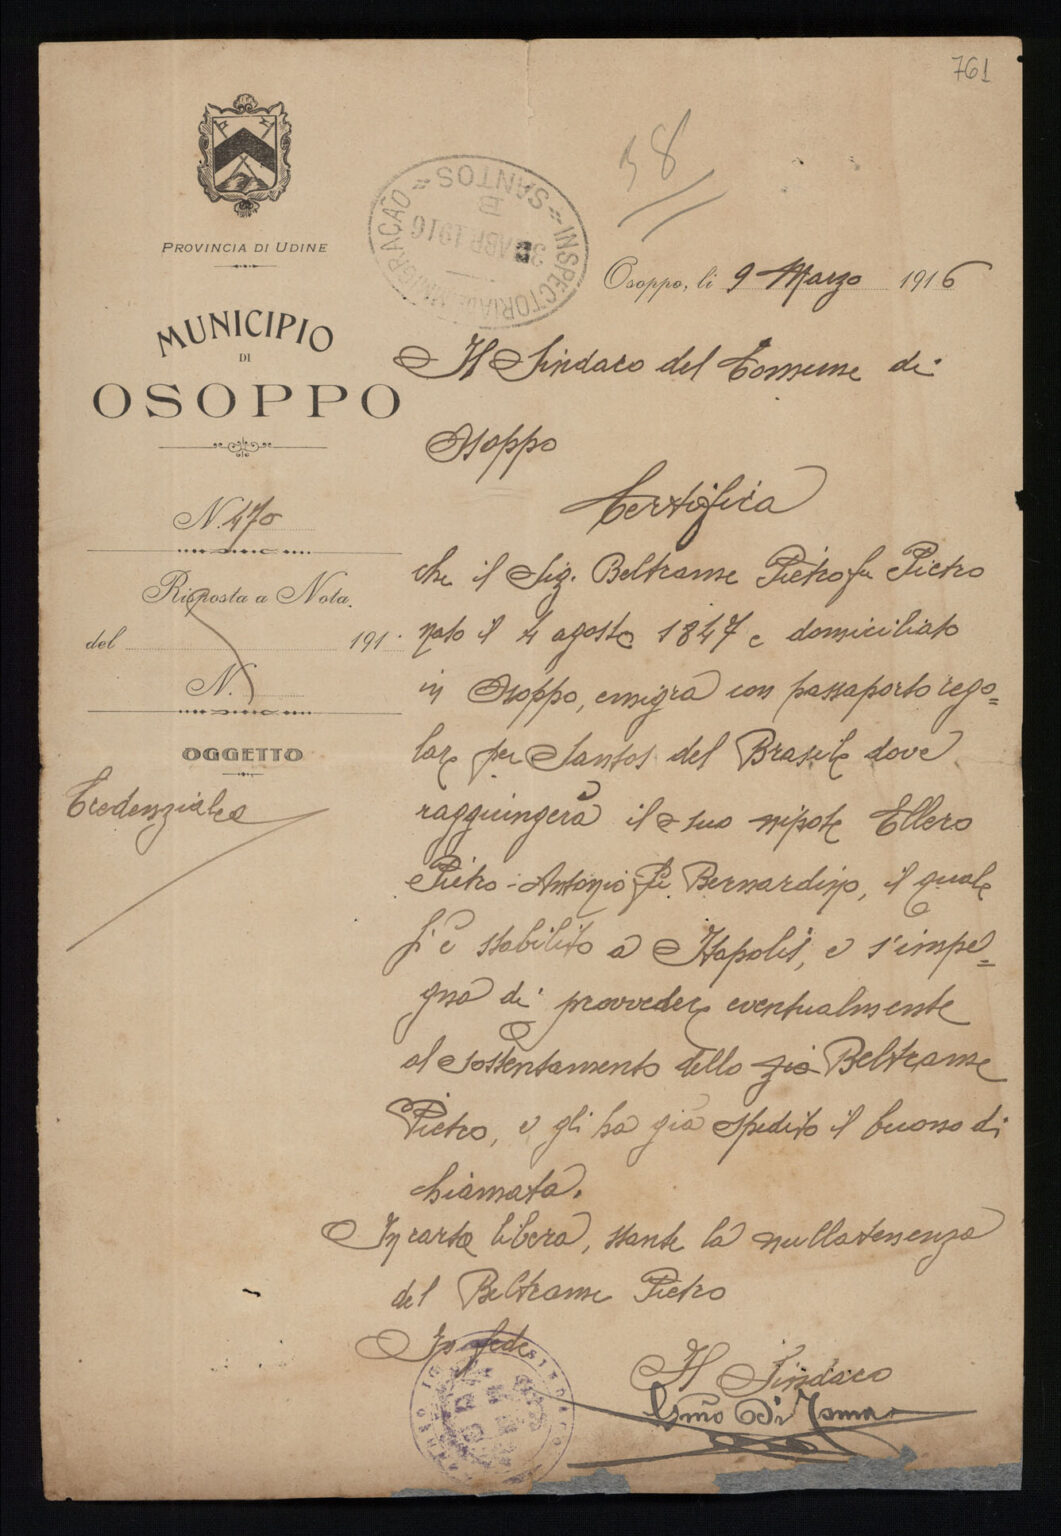 761
38
INSPECTORIA DE IMMIGRAÇÃO
SANTOS
ABR 1916
PROVINCIA DI UDINE
MUNICIPIO
DI
OSOPPO
N. 470
Risposta a Nota
del 191
N.
OGGETTO
Credenziale
Osoppo, li 9 Marzo 1916
Il Sindaco del Comune di
Osoppo
Certifica
che il Sig. Beltrame Pietro fu Pietro
nato il 4 agosto 1847 e domiciliato
in Osoppo, emigra con passaporto rego=
lare per Santos del Brasile dove
raggiungerà il suo nipote Ellero
Pietro-Antonio di Bernardino, il quale
si è stabilito a Napolis, e s'impe=
gna di provvedere eventualmente
al sostentamento dello zio Beltrame
Pietro, e gli ha già spedito il buono di
chiamata.
In carta libera, stante la nullatenenza
del Beltrame Pietro
In fede
Il Sindaco
Di Toma